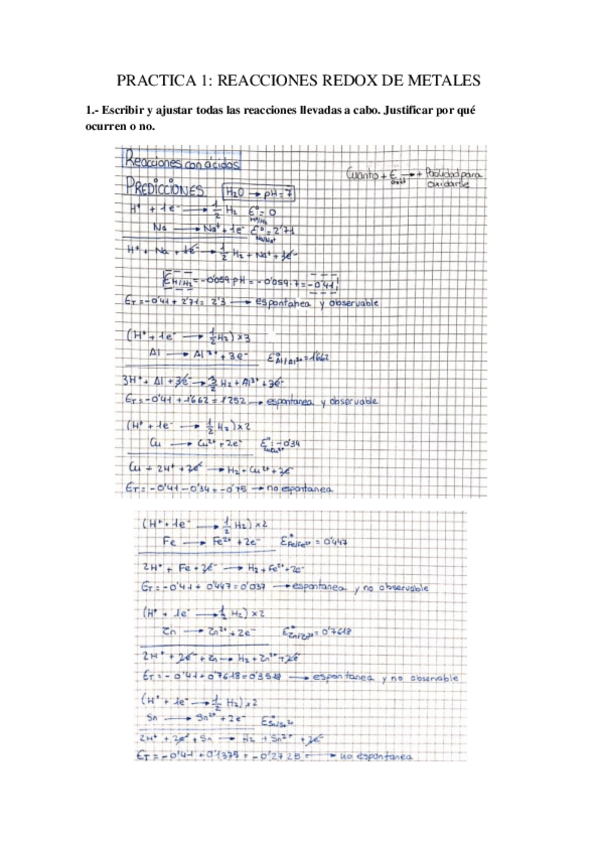 PRACTICA 1: REACCIONES REDOX DE METALES
1.- Escribir y ajustar todas las reacciones llevadas a cabo. Justificar por qué
ocurren o no.
Reacciones con ácidos
Cuanto + E → + Posibilidad para
PREDICCIONES H₂O → pH = 7
H⁺ + 1e⁻ → 1/2 H₂ E° = 0
Na → Na⁺ + 1e⁻ E° = 2'71
H⁺ + Na + 1e⁻ → 1/2 H₂ + Na⁺ + 1e⁻
E H/H₂ = -0'059 pH = -0'059·7 = -0'41
E_T = -0'41 + 2'71 = 2'3 → espontánea y observable
(H⁺ + 1e⁻ → 1/2 H₂) x3
Al → Al³⁺ + 3e⁻ E° Al/Al³⁺ = 1'662
3H⁺ + Al + 3e⁻ → 3/2 H₂ + Al³⁺ + 3e⁻
E_T = -0'41 + 1'662 = 1'252 → espontanea y observable
(H⁺ + 1e⁻ → 1/2 H₂) x2
Cu → Cu²⁺ + 2e⁻ E° = -0'34
Cu + 2H⁺ + 2e⁻ → H₂ + Cu²⁺ + 2e⁻
E_T = -0'41 - 0'34 = -0'75 → no espontanea
(H⁺ + 1e⁻ → 1/2 H₂) x2
Fe → Fe²⁺ + 2e⁻ E° Fe/Fe²⁺ = 0'447
2H⁺ + Fe + 2e⁻ → H₂ + Fe²⁺ + 2e⁻
E_T = -0'41 + 0'447 = 0'037 → espontanea y no observable
(H⁺ + 1e⁻ → 1/2 H₂) x2
Zn → Zn²⁺ + 2e⁻ E° Zn/Zn²⁺ = 0'7618
2H⁺ + 2e⁻ + Zn → H₂ + Zn²⁺ + 2e⁻
E_T = -0'41 + 0'7618 = 0'3518 → espontanea y no observable
(H⁺ + 1e⁻ → 1/2 H₂) x2
Sn → Sn²⁺ + 2e⁻ E° Sn/Sn²⁺
2H⁺ + 2e⁻ + Sn → H₂ + Sn²⁺ + 2e⁻
E_T = -0'41 + 0'1375 = -0'2725 → no espontanea